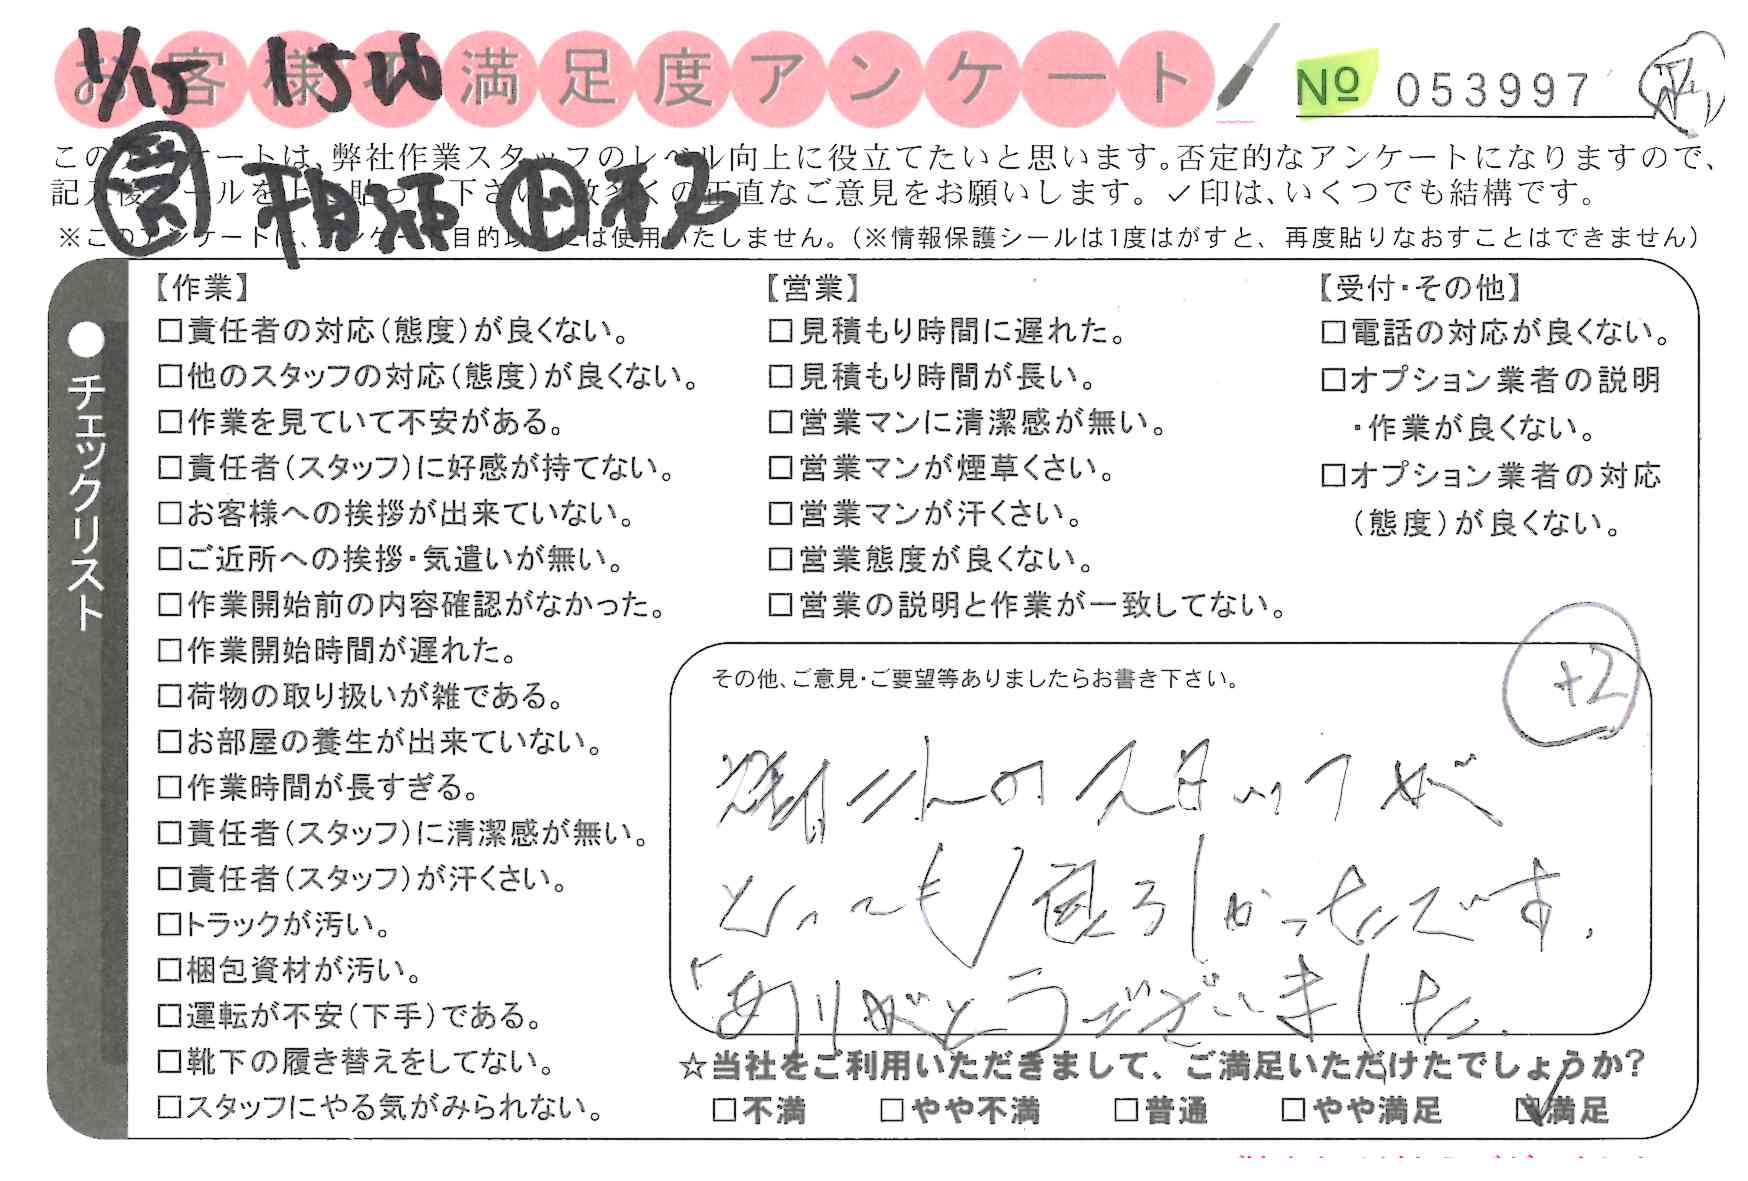 お客様不満足度アンケート
№ 053997
1/15 1526
このアンケートは、弊社作業スタッフのレベル向上に役立てたいと思います。否定的なアンケートになりますので、
記入後シールを上に貼って下さい。数多くの正直なご意見をお願いします。✓印は、いくつでも結構です。
※このアンケートは、アンケート目的以外には使用いたしません。(※情報保護シールは1度はがすと、再度貼りなおすことはできません)
●チェックリスト
【作業】
□責任者の対応(態度)が良くない。
□他のスタッフの対応(態度)が良くない。
□作業を見ていて不安がある。
□責任者(スタッフ)に好感が持てない。
□お客様への挨拶が出来ていない。
□ご近所への挨拶・気遣いが無い。
□作業開始前の内容確認がなかった。
□作業開始時間が遅れた。
□荷物の取り扱いが雑である。
□お部屋の養生が出来ていない。
□作業時間が長すぎる。
□責任者(スタッフ)に清潔感が無い。
□責任者(スタッフ)が汗くさい。
□トラックが汚い。
□梱包資材が汚い。
□運転が不安(下手)である。
□靴下の履き替えをしてない。
□スタッフにやる気がみられない。
【営業】
□見積もり時間に遅れた。
□見積もり時間が長い。
□営業マンに清潔感が無い。
□営業マンが煙草くさい。
□営業マンが汗くさい。
□営業態度が良くない。
□営業の説明と作業が一致してない。
【受付・その他】
□電話の対応が良くない。
□オプション業者の説明
・作業が良くない。
□オプション業者の対応
(態度)が良くない。
その他、ご意見・ご要望等ありましたらお書き下さい。
+2
とっても良かったです。
ありがとうございました。
☆当社をご利用いただきまして、ご満足いただけたでしょうか?
□不満 □やや不満 □普通 □やや満足 ☑満足